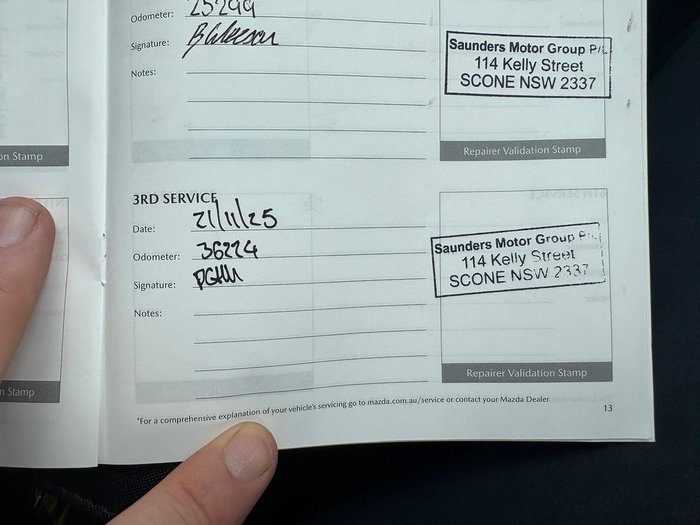 Odometer: 25299
Signature:
Notes:
Saunders Motor Group P/L
114 Kelly Street
SCONE NSW 2337
on Stamp
Repairer Validation Stamp
3RD SERVICE
Date: 21/11/25
Odometer: 36224
Signature:
Notes:
Saunders Motor Group P/L
114 Kelly Street
SCONE NSW 2337
n Stamp
Repairer Validation Stamp
*For a comprehensive explanation of your vehicle's servicing go to mazda.com.au/service or contact your Mazda Dealer
13